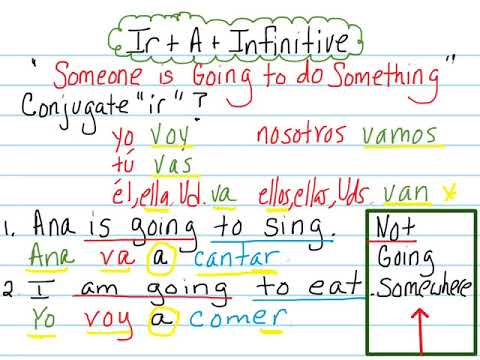 Ir + A + Infinitive
"Someone is Going to do Something"
Conjugate "ir"?
yo voy nosotros vamos
tú vas
él, ella, Ud. va ellos, ellas, Uds. van *
1. Ana is going to sing.
Ana va a cantar
2. I am going to eat.
Yo voy a comer
Not
Going
Somewhere